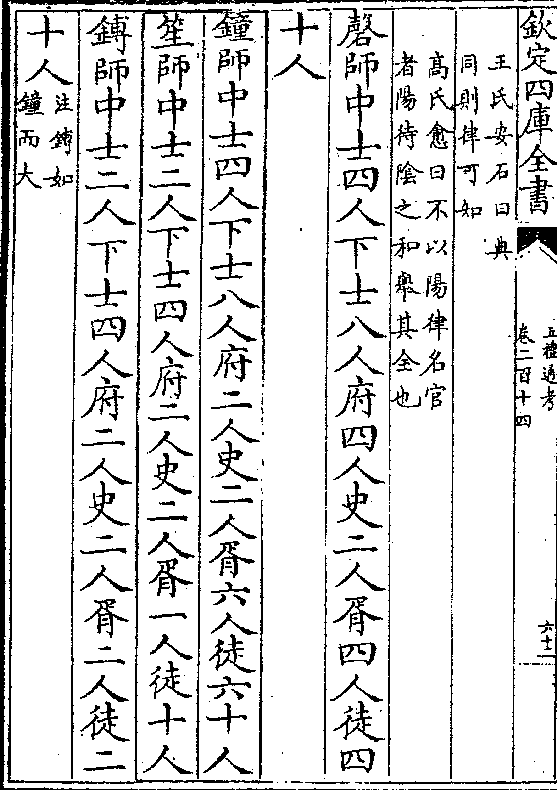 欽定四庫全書
五禮通考
卷二百十四
六十二
王氏安石曰典
同則律可如
高氏愈曰不以陽律名官
者陽待陰之和舉其全也
磬師中士四人下士八人府四人史二人胥四人徒四
十人
鐘師中士四人下士八人府二人史二人胥六人徒六十人
笙師中士二人下士四人府二人史二人胥一人徒十人
鎛師中士二人下士四人府二人史二人胥二人徒二
十人
注鎛如
鐘而大